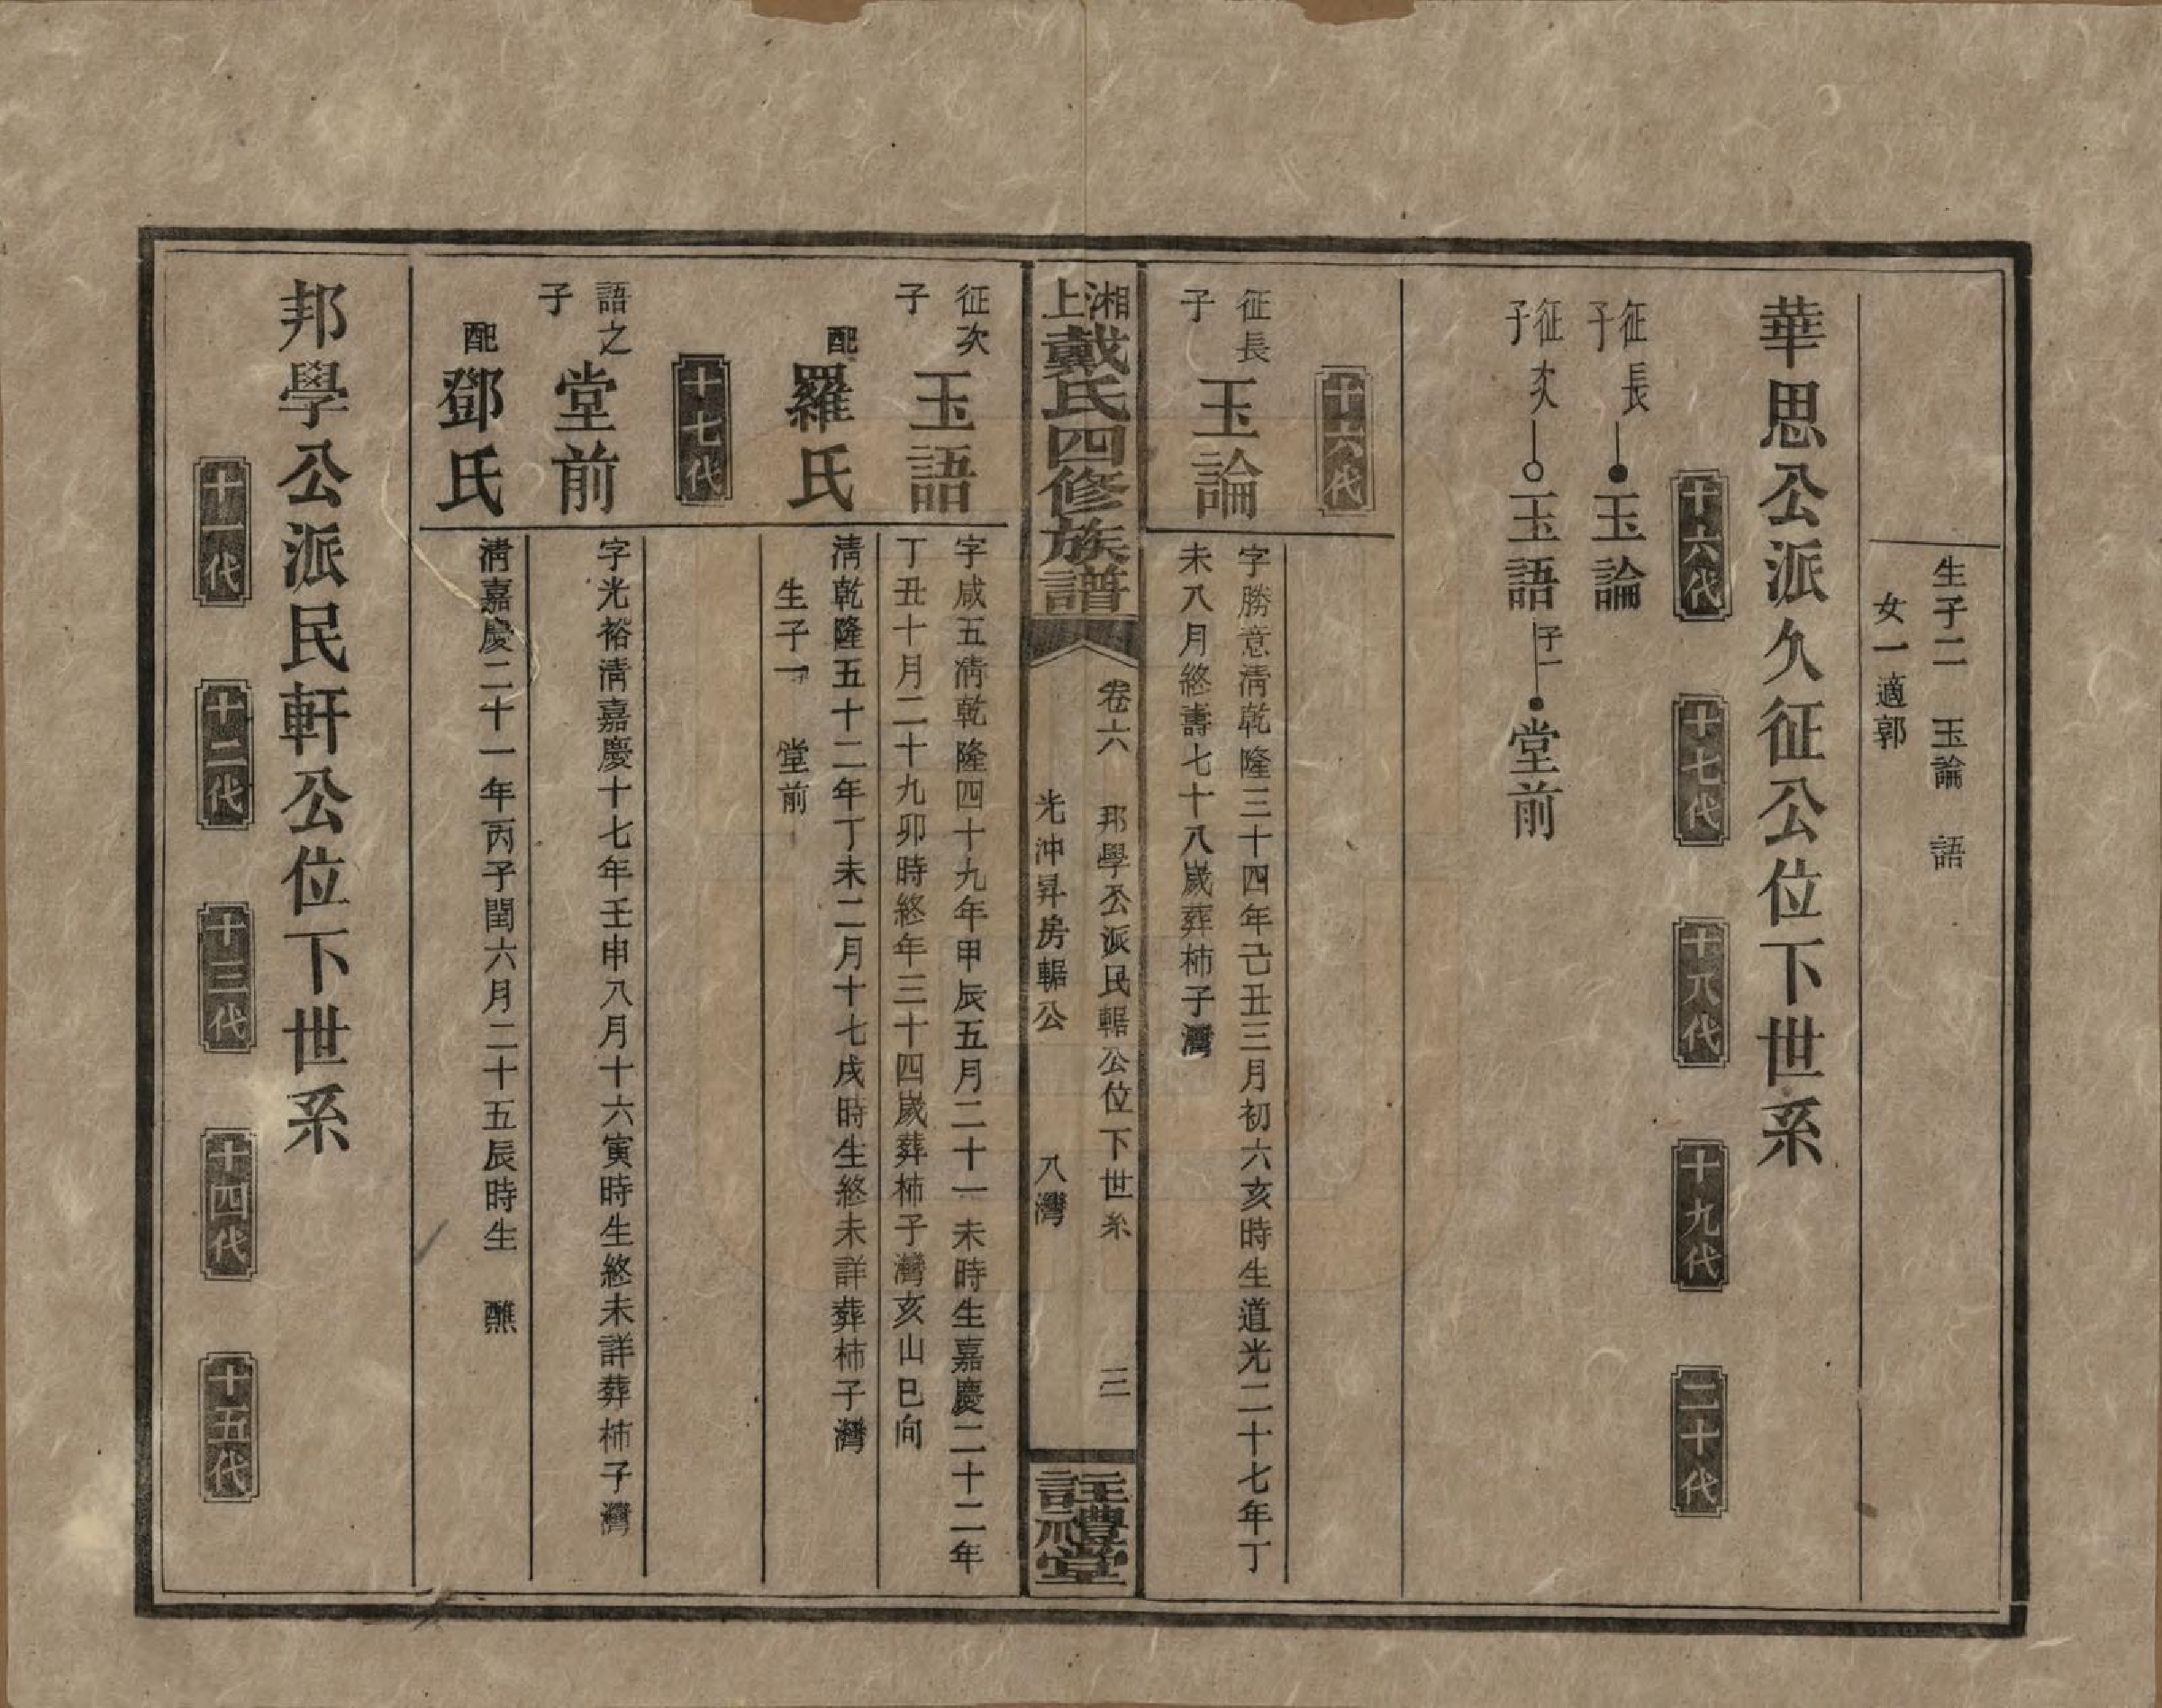 生子二　玉論　語
女一適郭
華思公派久征公位下世系
十六代　十七代　十八代　十九代　二十代
征長子　玉論
征次子　玉語　子一　堂前
十六代
征長子　玉論
字勝意清乾隆三十四年己丑三月初六亥時生道光二十七年丁
未八月終壽七十八歲葬柿子灣
湘上戴氏四修族譜　卷六　邦學公派民輼公位下世系　三
光沖昇房輼公　八灣
註禮堂
征次子　玉語
字咸五清乾隆四十九年甲辰五月二十一未時生嘉慶二十二年
丁丑十月二十九卯時終年三十四歲葬柿子灣亥山巳向
配　羅氏
清乾隆五十二年丁未二月十七戌時生終未詳葬柿子灣
生子一　堂前
十七代
語之子　堂前
字光裕清嘉慶十七年壬申八月十六寅時生終未詳葬柿子灣
配　鄧氏
清嘉慶二十一年丙子閏六月二十五辰時生　醮
邦學公派民軒公位下世系
十一代　十二代　十三代　十四代　十五代